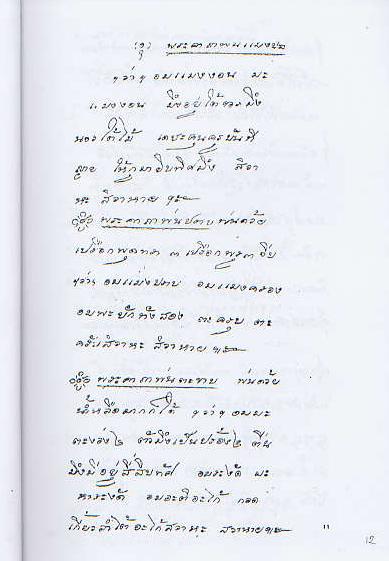 (๑) พระคาถาพ่นแมงปอ
ฯ ว่า ฯ อมแมงงอน มะ
แมงงอน มึงอยู่ใต้
นอนใต้ไม้ เดชะคุนครูบันที
ให้กูมาสิบทิศมึง สีวา
หะ สีวาหาย ฯะ
พระคาถาพ่นปลาบ พ่นด้วย
เปลือกพุดทรา ๓ เปลือก
ฯ ว่า ฯ อมแม่งปลาบ อมแมงครอง
อมพะยักทังสอง ตะครุบ ตะ
ครับสีวาหะ สีวาหาย ฯะ
พระคาถาพ่นตะขาบ พ่นด้วย
น้ำหลือมากก็ได้ ฯ ว่า ฯ อมมะ
ตะ ตัวมึงเป็นปล้อง ๒ ตีน
มึงมีอยู่สี่สิบทัศ อมระงับ มะ
หาระงับ อมอะติอะไก้ กอด
เกี้ยวลำไต้อะไก้สวาหะ สวาหาย ฯะ
11
12